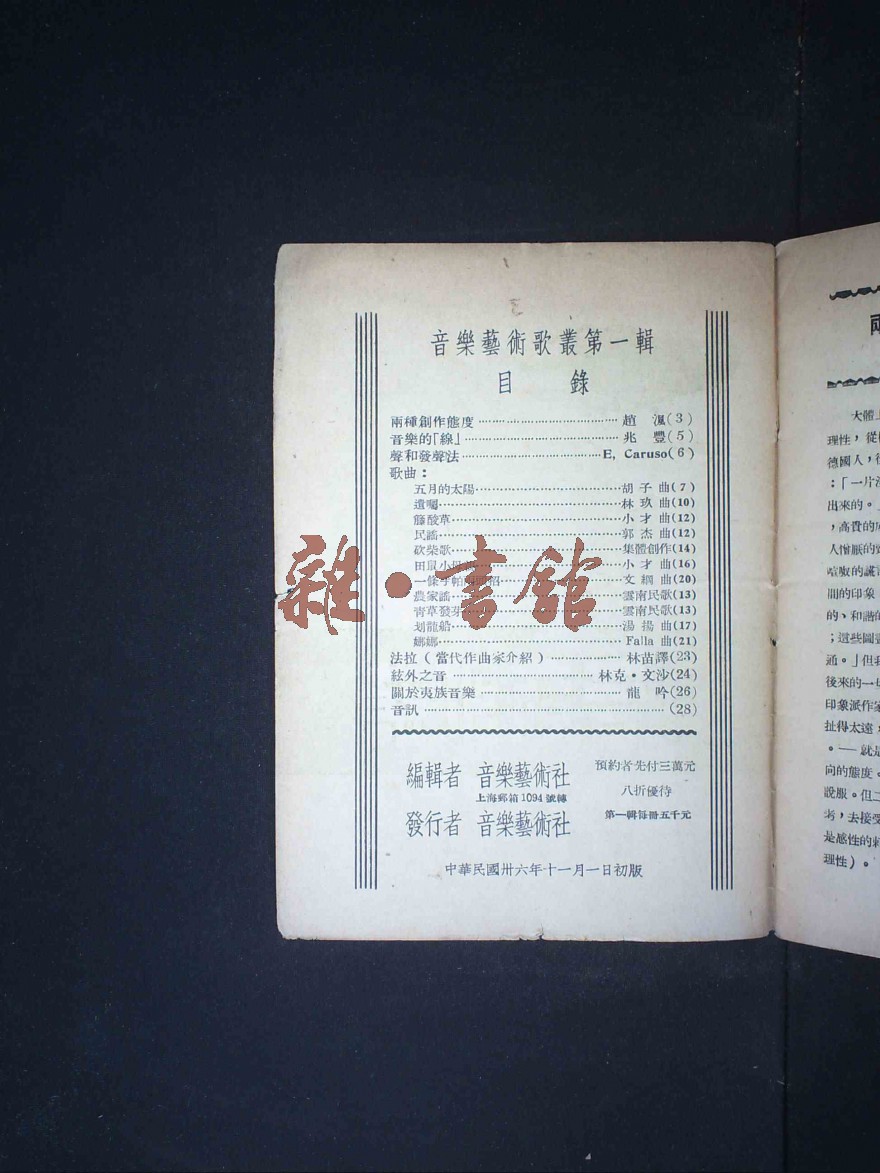 音樂藝術歌叢第一輯
目錄
兩種創作態度……趙渢(3)
音樂的「線」……兆豐(5)
聲和發聲法……E, Caruso(6)
歌曲:
五月的太陽……胡子曲(7)
遺囑……林玖曲(10)
篩酸草……小才曲(12)
民謠……郭杰曲(12)
砍柴歌……集體創作(14)
田鼠小……小才曲(16)
一條手帕……文綱曲(20)
農家謠……雲南民歌(13)
青草發芽……雲南民歌(13)
划龍船……湯揚曲(17)
娜娜……Falla 曲(21)
法拉(當代作曲家介紹)……林苗譯(23)
絃外之音……林克・文沙(24)
關於夷族音樂……龍吟(26)
音訊……(28)
編輯者 音樂藝術社
上海郵箱1094號轉
發行者 音樂藝術社
預約者先付三萬元
八折優待
第一輯每冊五千元
中華民國卅六年十一月一日初版
雜・書館
大體
理性,從
德國人,
:「一片
出來的。
,高貴的
人憎厭的
喧嘩的
間的印象
的、和諧的
;這些圖
通。」但
後來的一
印象派作家
扯得太遠
。—就是
向的態度。
說服。但二
考,去接受
是感性的
理性)。